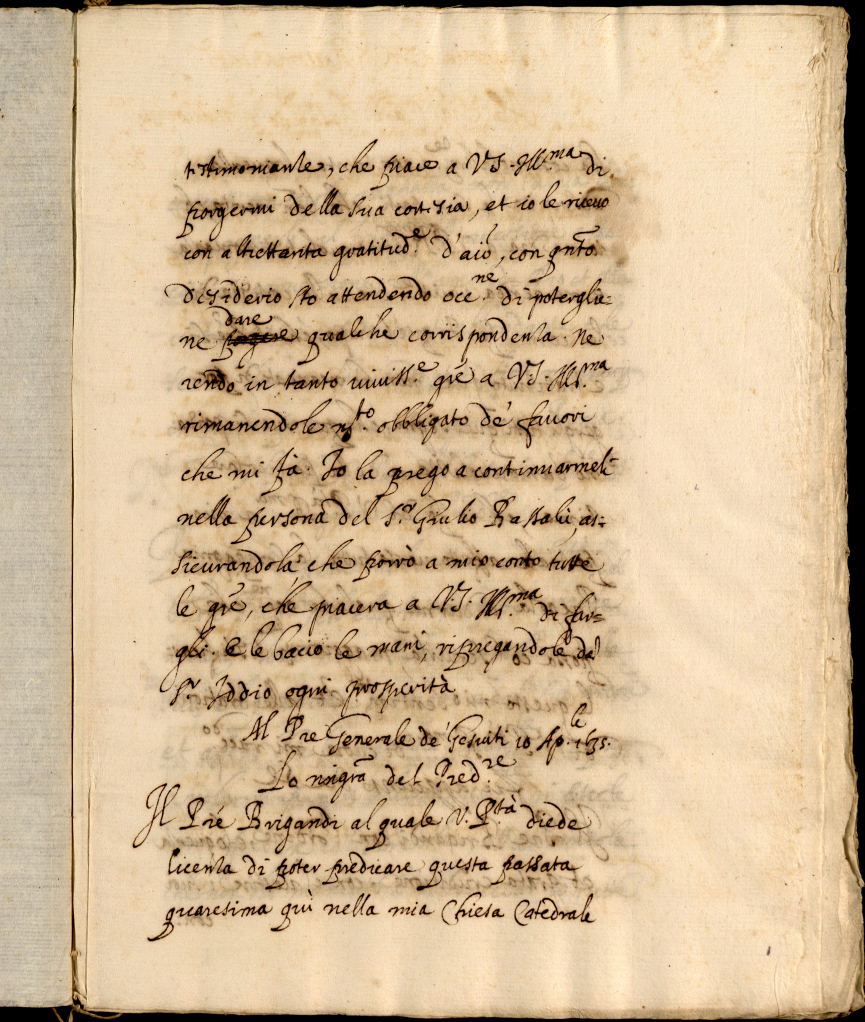 testimonianze, che piace a VS. Ill.ma di
porgermi della sua cortesia, et io le riceuo
con altrettanta gratitud.e d'aiō, con qnto
desiderio sto attendendo occ.ne di poterglie-
ne dare qualche corrispondenza. Ne
rendo in tanto viuiss.e grē a VS. Ill.ma
rimanendole m.to obbligato de' fauori
che mi fà. Io la prego a continuarmeli
nella persona del S.r Giulio as-
sicurandola che porrò a mio conto tutte
le grē, che piacerà a VS. Ill.ma di far-
gli. E le bacio le mani, ripregandole dal
S.r Iddio ogni prosperità
Al Prē Generale de' Gesuati 10 Ap.le 1635.
Lo ringrā del Pred.re
Il Prē Brigandi al quale V. P.tà diede
licenza di poter predicare questa passata
quaresima quì nella mia Chiesa Catedrale